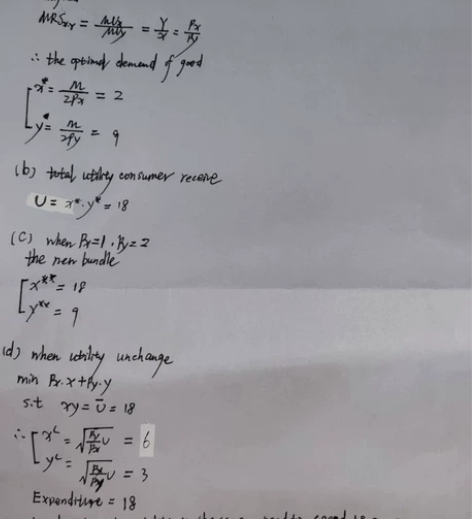 MRSxy = MUx/MUy = Y/X = Px/Py
∴ the optimal demand of good
x* = M/2Px = 2
y* = M/2Py = 9
(b) total utility consumer receive
U = x*·y* = 18
(C) when Px=1, Py=2
the new bundle
x** = 18
y** = 9
(d) when utility unchange
min Px·x+Py·y
s.t xy = Ū = 18
∴ x^c = √(Py/Px U) = 6
y^c = √(Px/Py U) = 3
Expenditure = 18